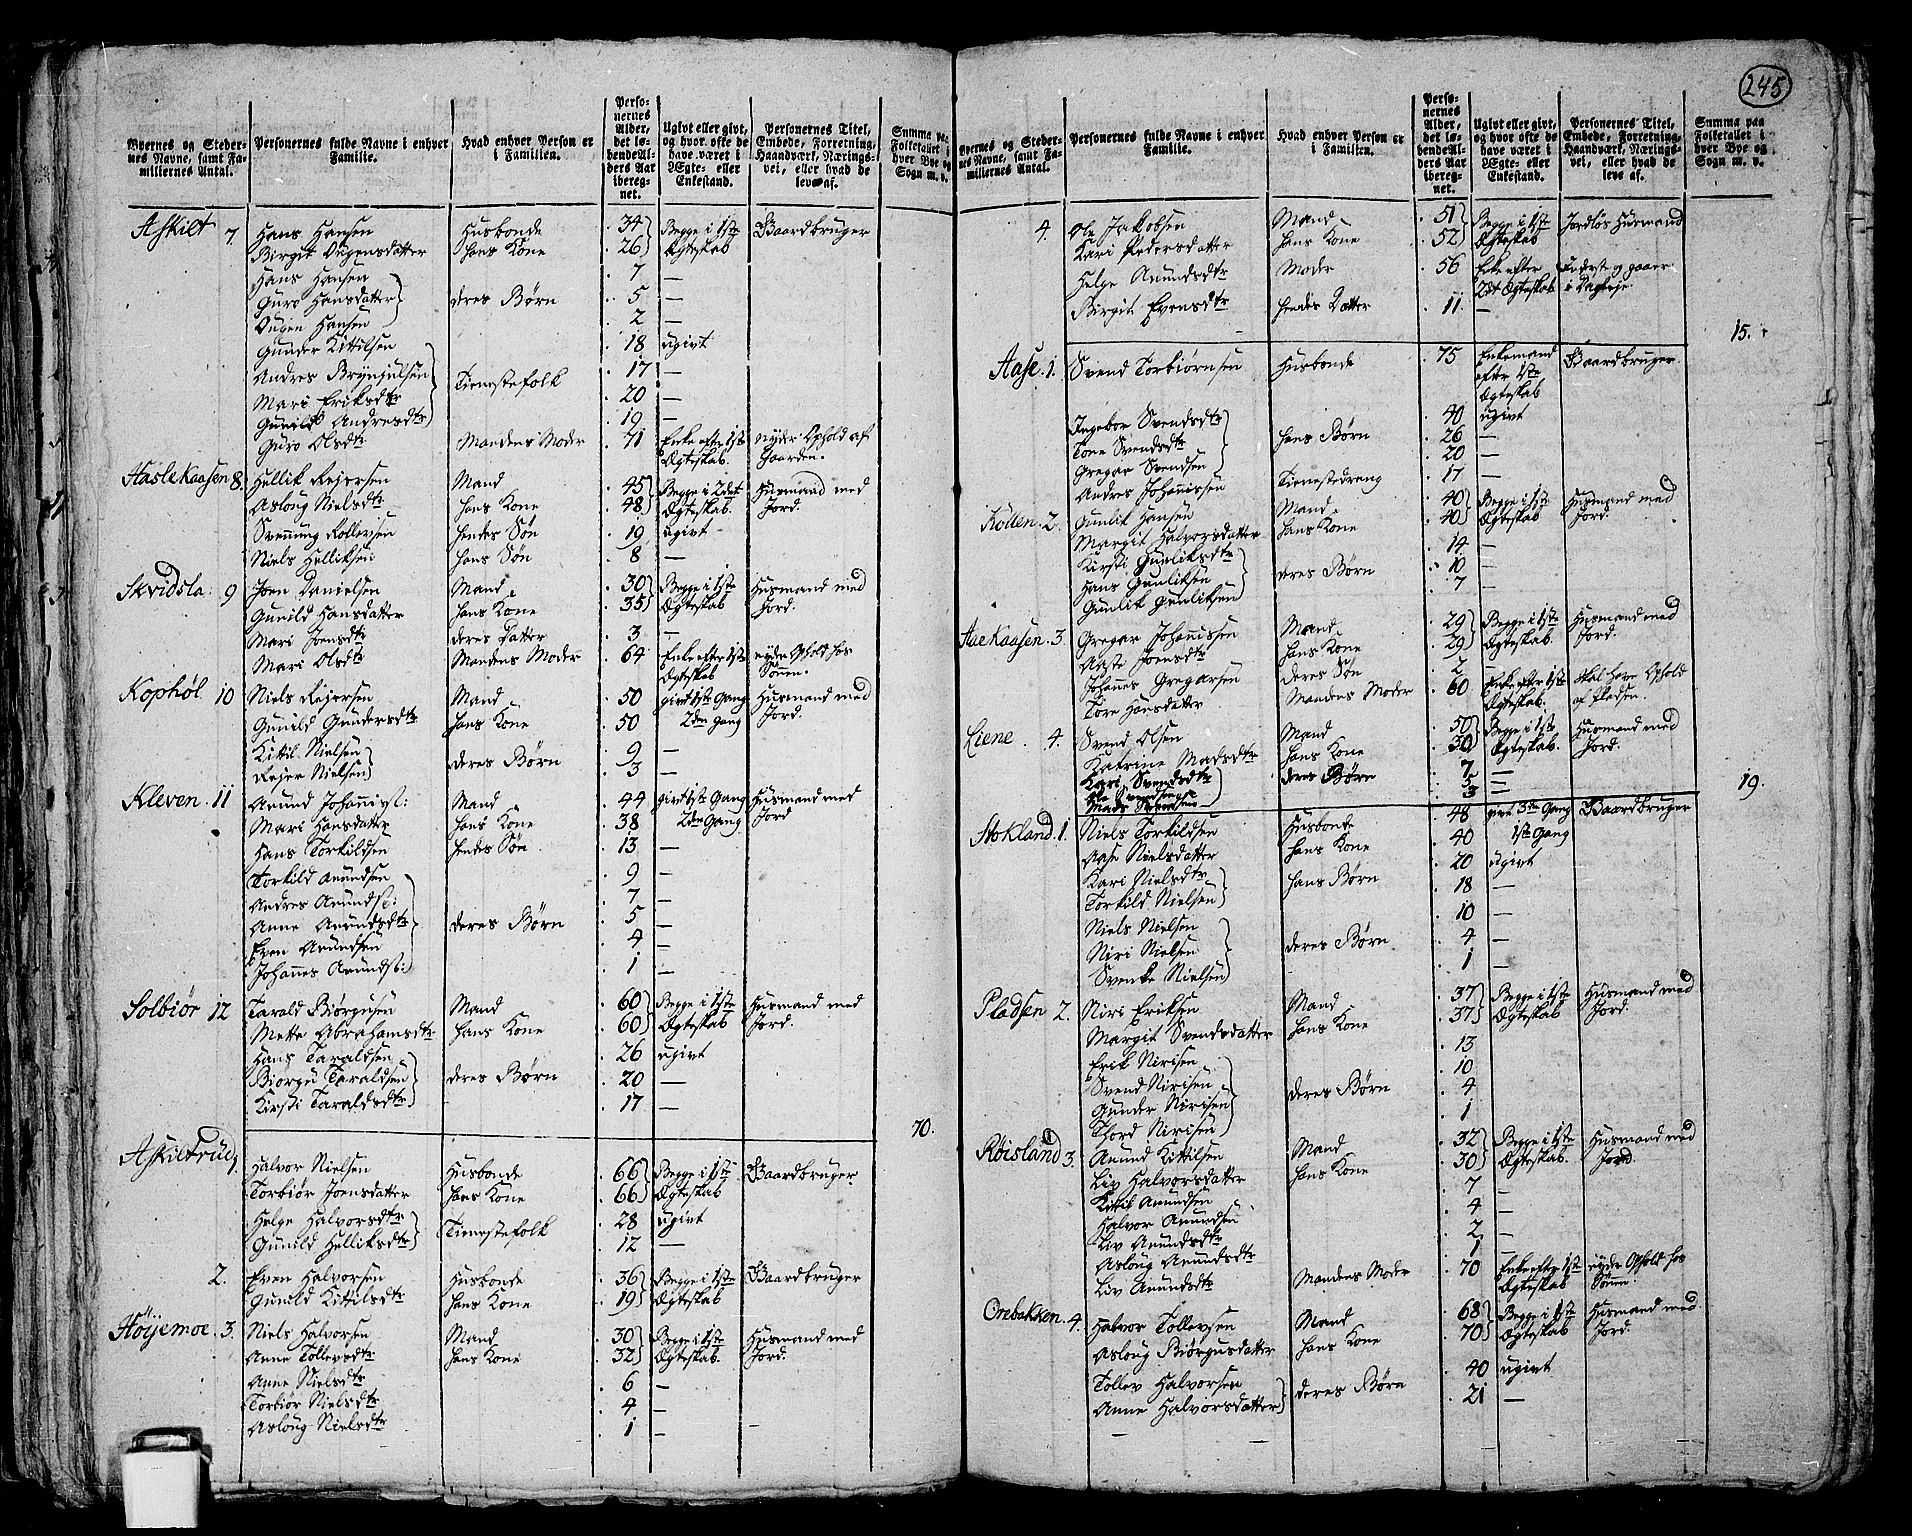 245
Byernes og Steder-
nes Navne, samt Fa-
miliernes Antal.
Personernes fulde Navne i enhver
Familie.
Hvad enhver Person er
i Familien.
Perso-
nernes
Alder,
det lø-
bende Al-
ders Aar
iberegnet.
Ugivt eller givt,
og hvor ofte de
have været i
Ægte- eller
Enkestand.
Personernes Titel,
Embede, Forretning,
Haandværk, Nærings-
vei, eller hvad de
leve af.
Summa paa
Folketallet i
hver Bye og
Sogn m. v.
Askilt 7. Hans Hansen Husbonde 34 Begge i 1ste Gaardbruger
Birgit Ougensdatter hans Kone 26 Ægteskab
Hans Hansen 7 —
Guro Hansdatter deres Børn 5 —
Ougen Hansen 2 —
Gunder Kittilsen 18 ugivt
Andres Brynjulsen Tienestefolk 17 —
Mari Eriksdtr 20 —
Gunild Andresdtr 19 —
Guro Olsdtr Mandens Moder 71 Enke efter 1ste nyder Ophold af
Ægteskab. Gaarden.
Haslekaasen 8. Hellik Rejersen Mand 45 Begge i 2det Husmand med
Aslong Nielsdtr hans Kone 48 Ægteskab. Jord.
Svennung Rollevsen hendes Søn 19 ugivt
Niels Helliksen hans Søn 8 —
Skvidsla: 9 Joen Danielsen Mand 30 Begge i 1ste Husmand med
Gunild Hansdatter hans Kone 35 Ægteskab Jord.
Mari Joensdtr deres Datter 3 —
Mari Olsdtr Mandens Moder 64 Enke efter 1ste nyder Ophold hos
Ægteskab Sönen.
Kophøl 10 Niels Rejersen Mand 50 givt 1ste Gang Husmand med
Gunild Gundersdtr hans Kone 50 2den Gang Jord.
Kittil Nielsen deres Børn 9 —
Rejer Nielsen 3 —
Kleven 11 Anund Johannis: Mand 44 givt 1ste Gang Husmand med
Mari Hansdatter hans Kone 38 2den Gang Jord
Hans Torkildsen hendes Søn 13 —
Torkild Anundsen 9 —
Andres Anunds: 7 —
Anne Anundsdtr deres Børn 5 —
Even Anundsen 4 —
Johannes Anunds: 1 —
Solbiør 12 Tarald Biørgusen Mand 60 Begge i 1ste Husmand med
Mette Abrahamsdtr hans Kone 60 Ægteskab Jord.
Hans Taraldsen 26 ugivt
Biörgu Taraldsen deres Børn 20 —
Kirsti Taraldsdtr 17 —
70.
Askiltrud 1. Halvor Nielsen Husbonde 66 Begge i 1ste Gaardbruger
Torbiør Joensdatter hans Kone 66 Ægteskab
Helge Halvorsdtr Tienestefolk 28 ugivt
Gunild Helliksdtr 12 —
2. Even Halvorsen Husbonde 36 Begge i 1ste Gaardbruger
Gunild Kittilsdtr hans Kone 19 Ægteskab
Høijemoe 3. Niels Halvorsen Mand 30 Begge i 1ste Husmand med
Anne Tollevsdtr hans Kone 32 Ægteskab. Jord.
Anne Nielsdtr 6 —
Torbiør Nielsdtr 4 —
Aslong Nielsdtr 1 —
Byernes og Steder-
nes Navne, samt Fa-
miliernes Antal.
Personernes fulde Navne i enhver
Familie.
Hvad enhver Person er
i Familien.
Perso-
nernes
Alder,
det lø-
bende Al-
ders Aar
iberegnet.
Ugivt eller givt,
og hvor ofte de
have været i
Ægte- eller
Enkestand.
Personernes Titel,
Embede, Forretning,
Haandværk, Nærings-
vei, eller hvad de
leve af.
Summa paa
Folketallet i
hver Bye og
Sogn m. v.
4. Ole Jakobsen Mand 51 Begge i 1ste Jordløs Husmand
Kari Pedersdatter hans Kone 52 Ægteskab
Helge Anundsdtr Moder 56 Enke efter Inderste og gaaer
2det Ægteskab i Dagleje.
Birgit Evensdtr hendes Datter 11. —
15.
Aase. 1. Svend Torbiørnsen Husbonde 75 Enkemand Gaardbruger
efter 1ste
Ægteskab
Ingebor Svendsdtr 40 ugivt
Tone Svendsdtr hans Børn 26 —
Gregar Svendsen 20 —
Andres Johannissen Tienestedreng 17 —
Kollen. 2. Gunlik Hansen Mand 40 Begge i 1ste Husmand med
Margit Halvorsdatter hans Kone 40 Ægteskab Jord.
Kirsti Gunliksdtr 14 —
Hans Gunliksen deres Børn 10 —
Gunlik Gunliksen 7 —
Aaekaasen. 3 Gregar Johannissen Mand 29 Begge i 1ste Husmand med
Aase Joensdtr hans Kone 29 Ægteskab. Jord.
Johannes Gregarsen deres Søn 2 —
Tore Hansdatter Mandens Moder 60 Enke efter 1ste skal have Ophold
Ægteskab. af Pladsen.
Liene 4. Svend Olsen Mand 50 Begge i 1ste Husmand med
Katrine Madsdtr hans Kone 30 Ægteskab. Jord.
Kari Svendsdtr 7 —
Ole Svendsen deres Børn 5 —
Mads Svendsen 3 —
19.
Stokland. 1. Niels Torkildsen Husbonde 48 givt 3die Gang Gaardbruger
Aase Nielsdatter hans Kone 40 1ste Gang
Kari Nielsdtr hans Børn 20 ugivt
Torkild Nielsen 18 —
Niels Nielsen 10 —
Niri Nielsen deres Børn 4 —
Svenke Nielsen 1 —
Pladsen 2. Niri Eriksen Mand 37 Begge i 1ste Husmand med
Margit Svendsdatter hans Kone 37 Ægteskab Jord.
Erik Nirisen 13
Svend Nirisen deres Børn 10
Gunder Nirisen 4
Thord Nirisen 1
Røisland 3. Anund Kittilsen Mand 32 Begge i 1ste Husmand med
Liv Halvorsdatter hans Kone 30 Ægteskab. Jord.
Kittil Anundsen 7 —
Halvor Anundsen 4 —
Liv Anundsdtr 2 —
Aslong Anundsdtr 1 —
Liv Anundsdtr Mandens Moder 70 Enke efter 1ste nyder Ophold hos
Ægteskab Sönnen.
Orebakken. 4. Halvor Tollevsen Mand 68 Begge i 1ste Husmand med
Aslong Biørgusdatter hans Kone 70 Ægteskab. Jord.
Tollev Halvorsen deres Børn 40 ugivt
Anne Halvorsdatter 21 —